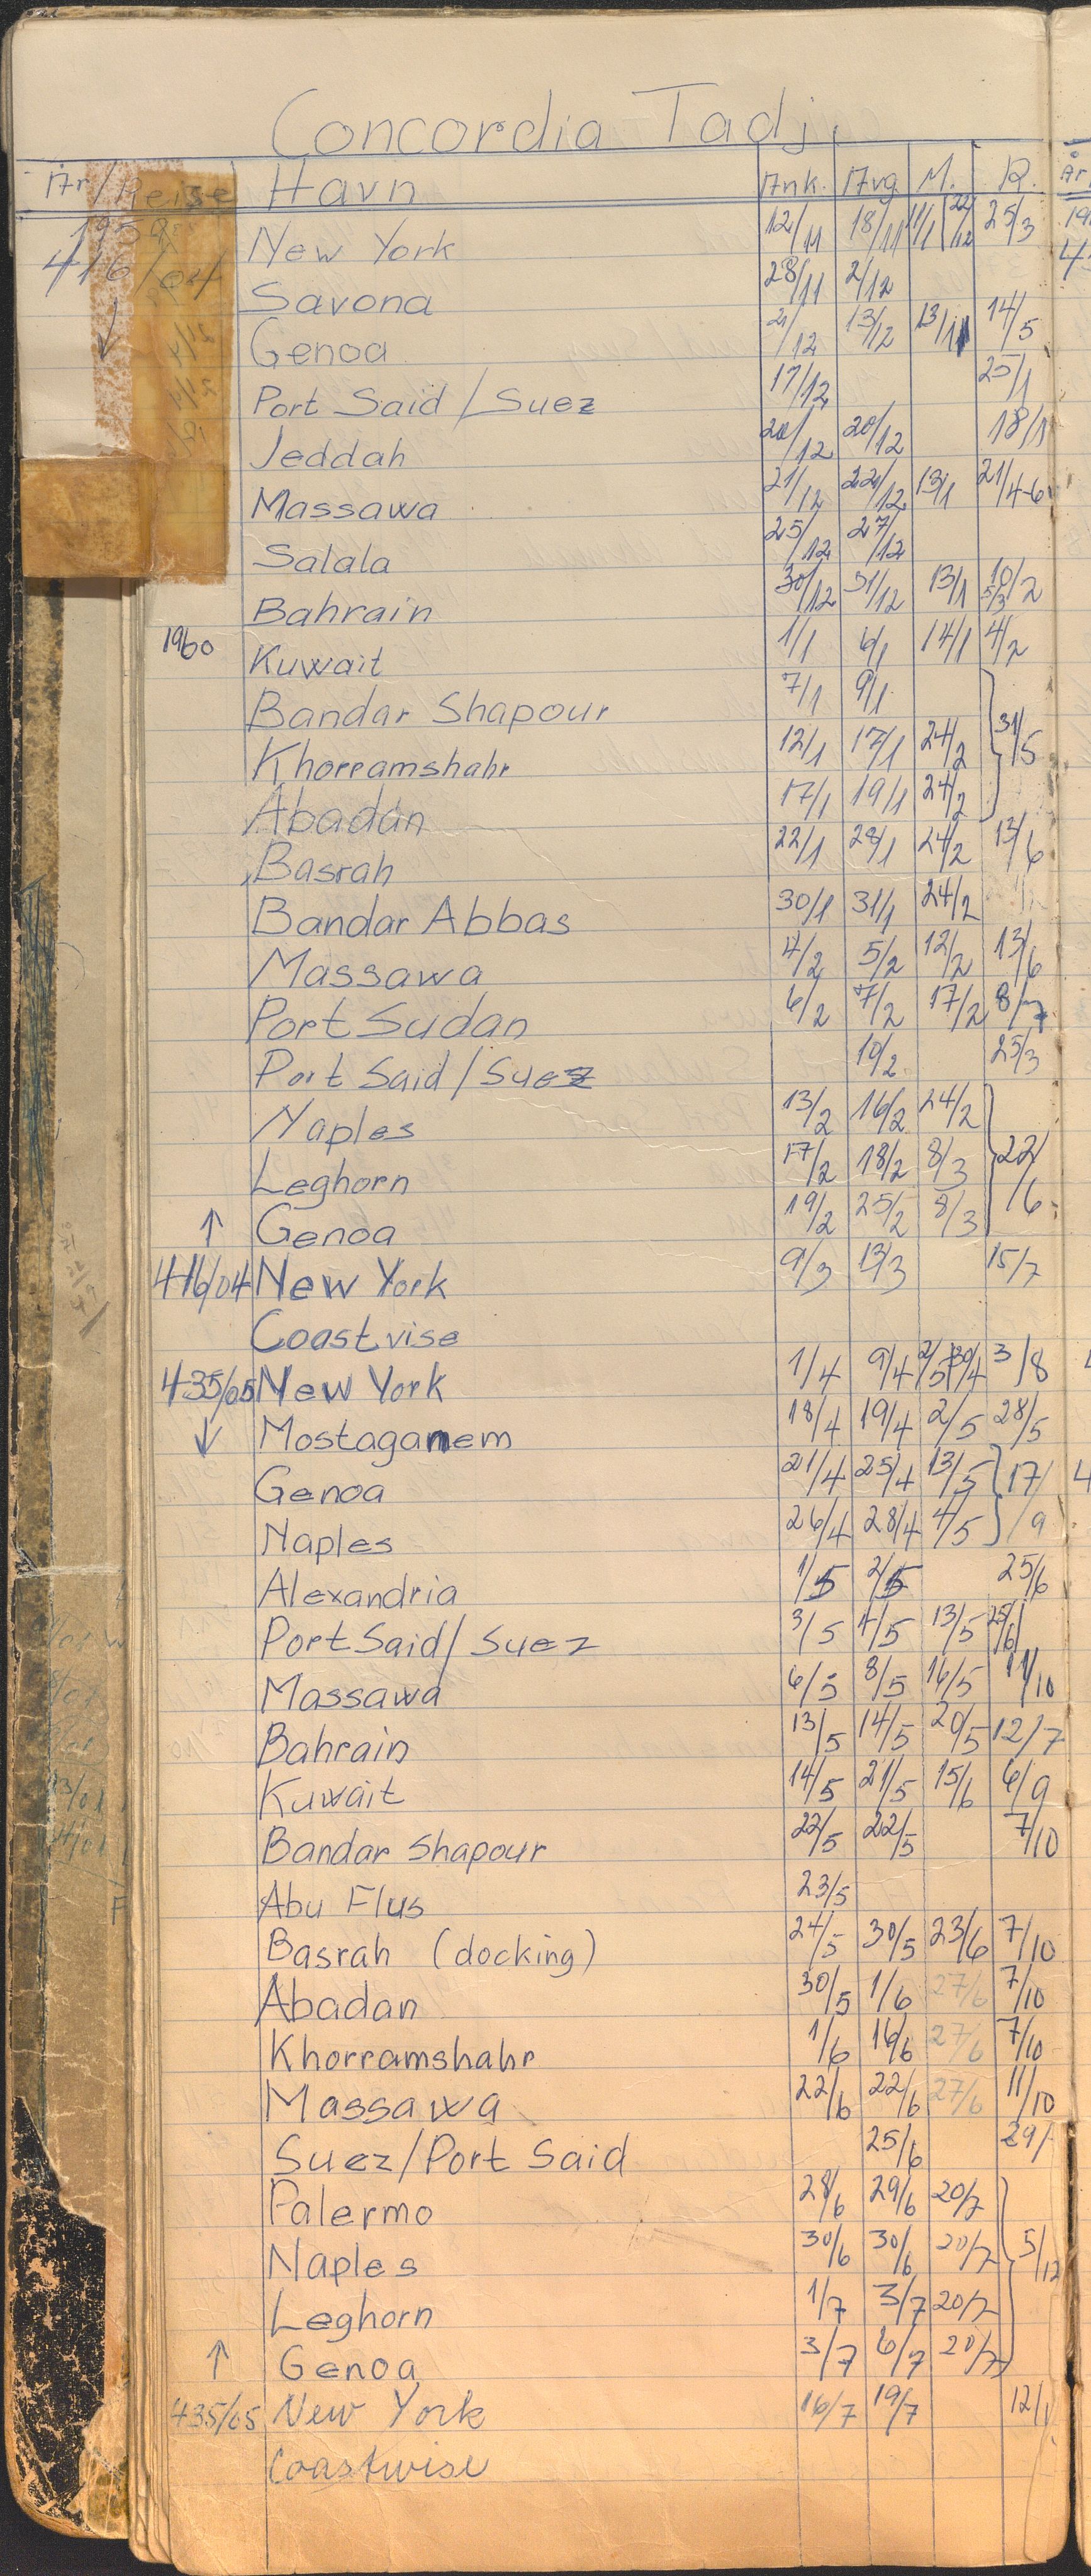 Concordia Tadj.
År/Reise Havn Ank. Avg. M. R.
1959 New York 12/11 18/11 11/1 22/12 25/3
416/04 Savona 28/11 2/12
↓ Genoa 2/12 13/12 13/1 14/5
Port Said/Suez 17/12 25/1
Jeddah 20/12 20/12 18/1
Massawa 21/12 22/12 13/1 21/4-6
Salala 25/12 27/12
Bahrain 30/12 31/12 13/1 10/2 5/3
1960 Kuwait 1/1 6/1 14/1 4/2
Bandar Shapour 7/1 9/1
Khorramshahr 12/1 17/1 24/2 31/5
Abadan 17/1 19/1 24/2
Basrah 22/1 28/1 24/2 13/6
Bandar Abbas 30/1 31/1 24/2
Massawa 4/2 5/2 12/2 13/6
Port Sudan 6/2 7/2 17/2 8/7
Port Said/Suez 10/2 25/3
Naples 13/2 16/2 24/2
Leghorn 17/2 18/2 8/3 22/6
↑ Genoa 19/2 25/2 8/3
416/04 New York 9/3 13/3 15/7
Coastvise
435/05 New York 1/4 9/4 2/5 30/4 3/8
↓ Mostaganem 18/4 19/4 2/5 28/5
Genoa 21/4 25/4 13/5 17/9
Naples 26/4 28/4 4/5
Alexandria 1/5 2/5 25/6
Port Said/Suez 3/5 4/5 13/5 25/6
Massawa 6/5 8/5 16/5 11/10
Bahrain 13/5 14/5 20/5 12/7
Kuwait 14/5 21/5 15/6 6/9
Bandar Shapour 22/5 22/5 7/10
Abu Flus 23/5
Basrah (docking) 24/5 30/5 23/6 7/10
Abadan 30/5 1/6 27/6 7/10
Khorramshahr 1/6 16/6 27/6 7/10
Massawa 22/6 22/6 27/6 11/10
Suez/Port Said 25/6 29/
Palermo 28/6 29/6 20/7
Naples 30/6 30/6 20/7 5/12
Leghorn 1/7 3/7 20/7
↑ Genoa 3/7 6/7 20/7
435/05 New York 16/7 19/7 12/1
Coastwise